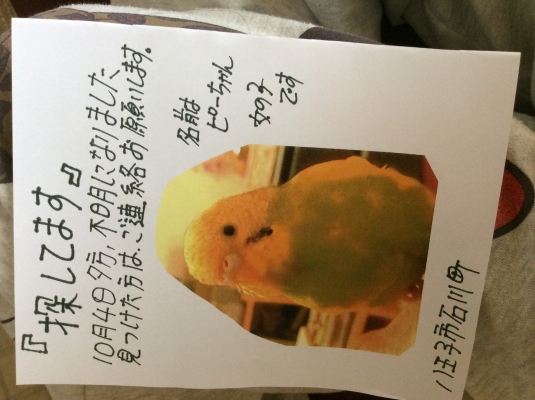 『探してます』
10月4日夕方、不明になりました、
見つけた方はご連絡お願いします。
名前は
ピーちゃん
女の子
です
八王子市石川町